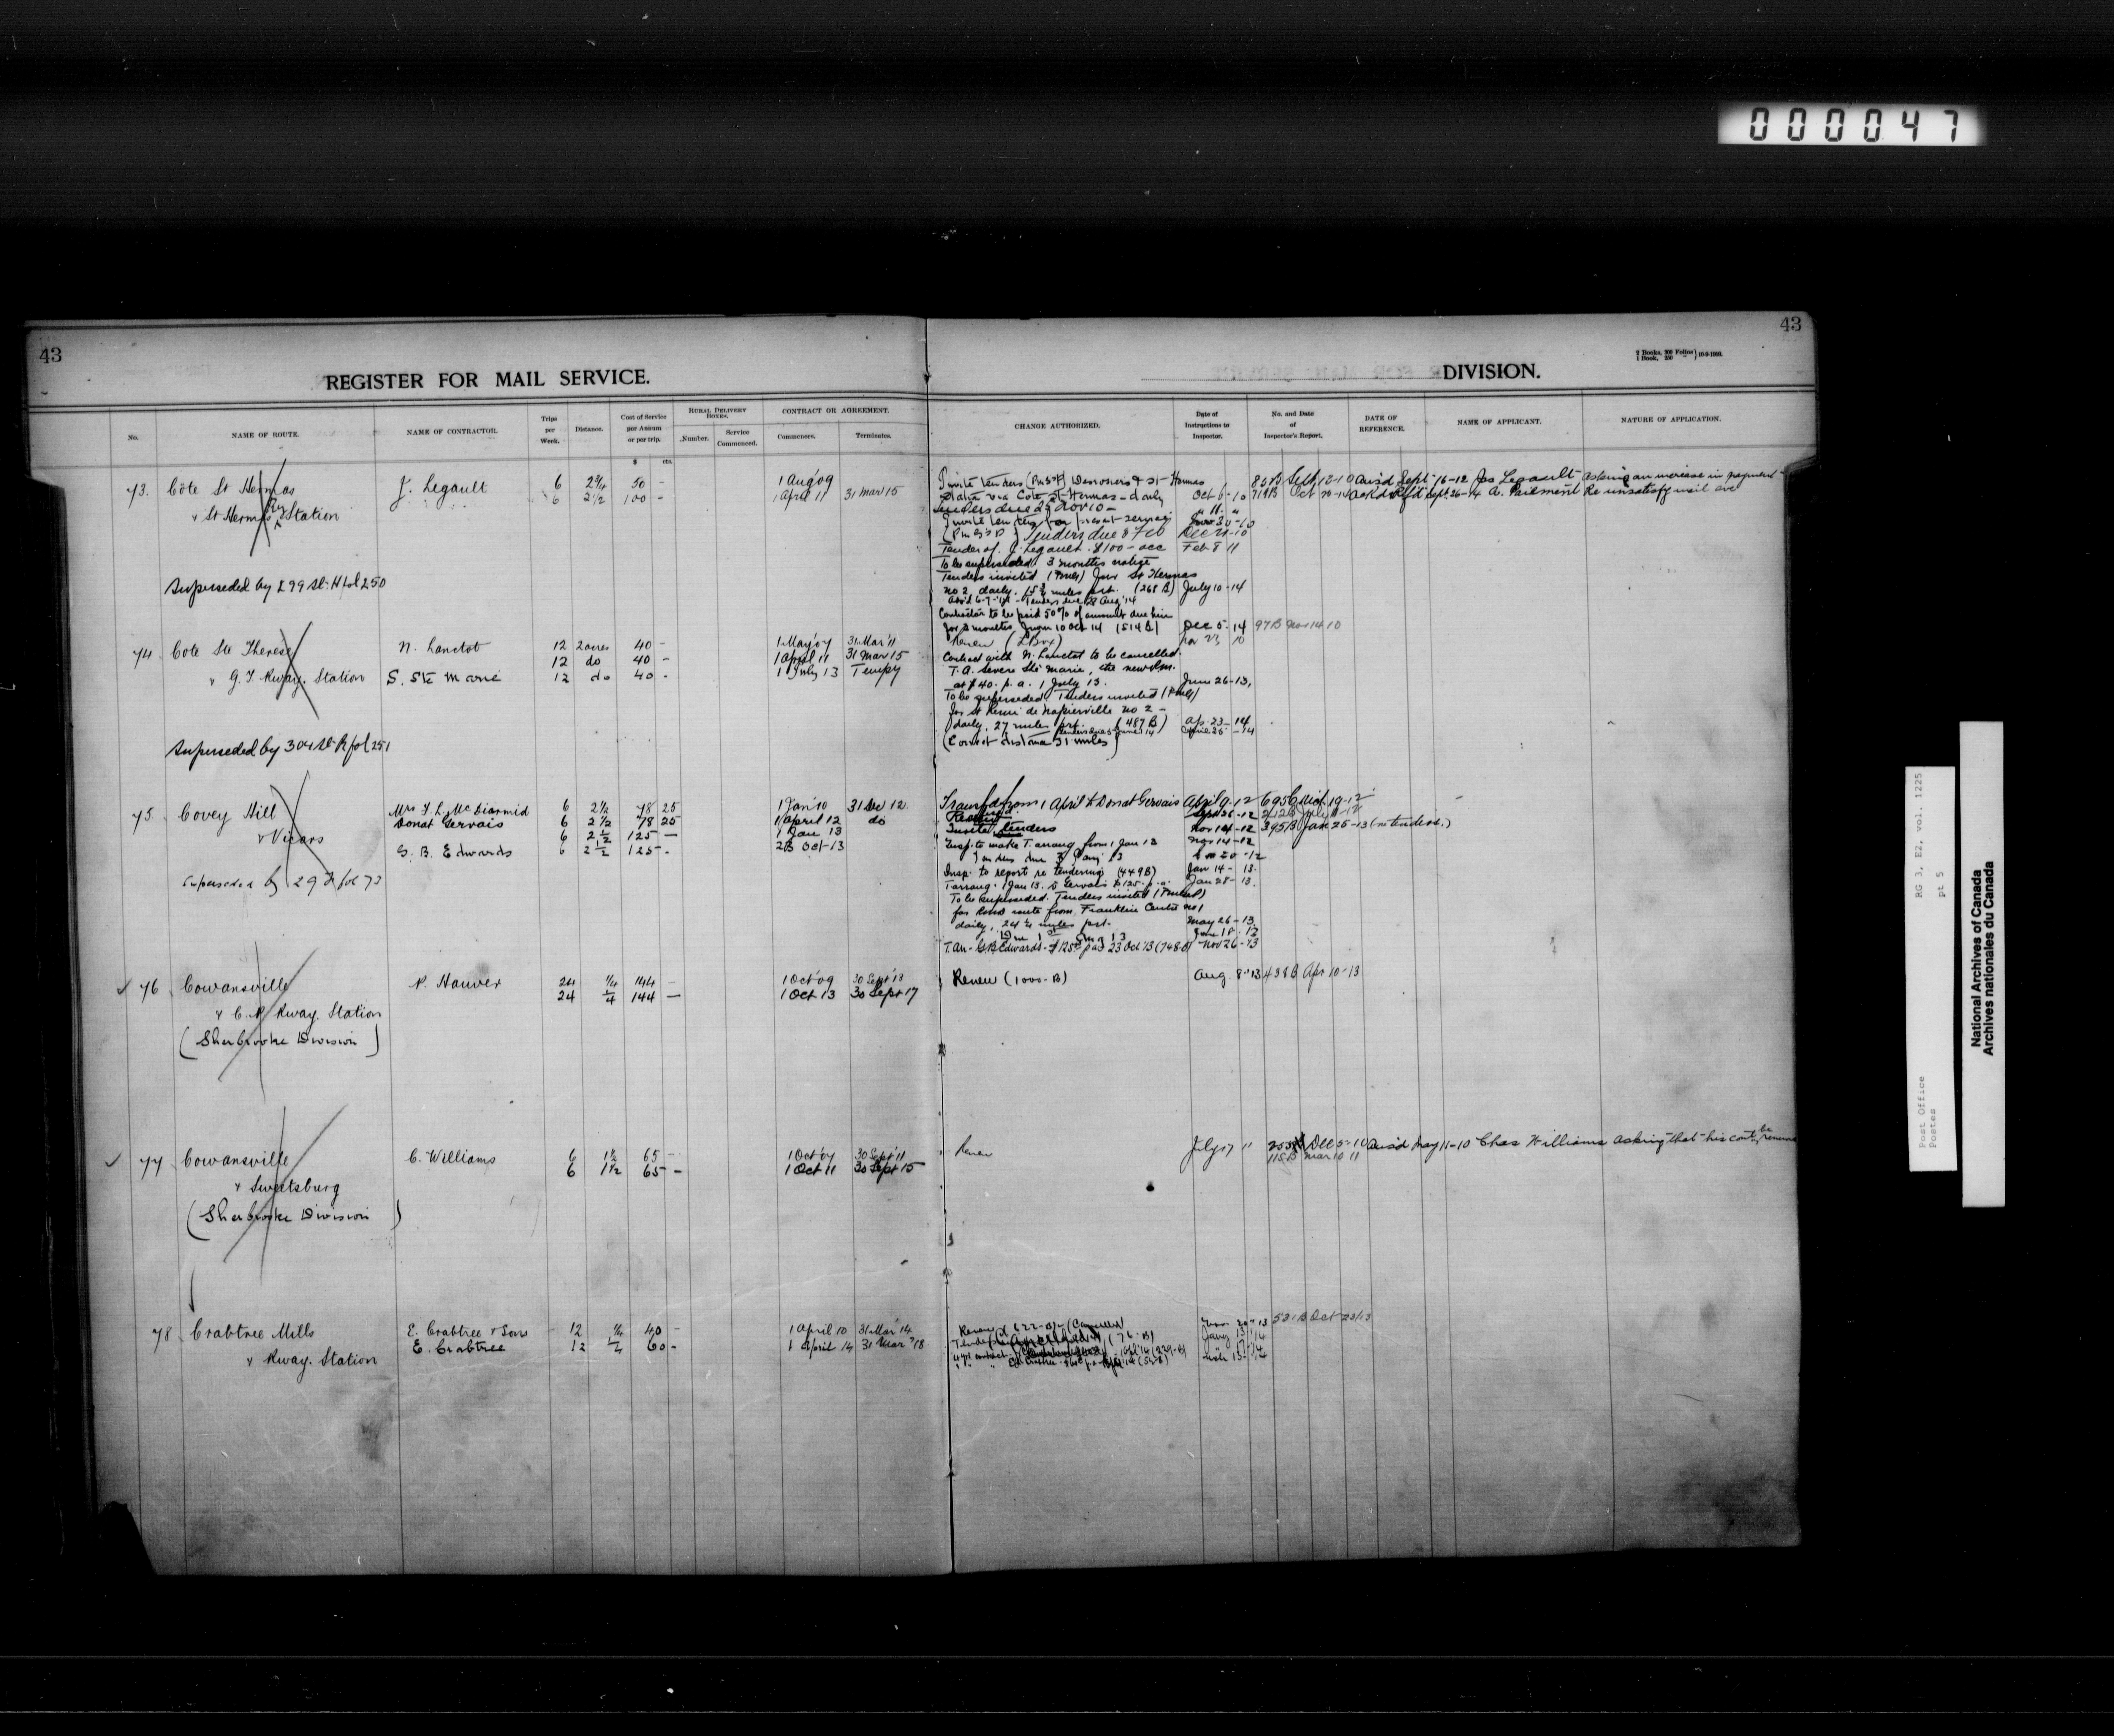 000047
43
REGISTER FOR MAIL SERVICE.
No.
NAME OF ROUTE.
NAME OF CONTRACTOR.
Trips per Week.
Distance.
Cost of Service per Annum or per trip.
$ cts.
RURAL DELIVERY BOXES.
Number.
Service Commenced.
CONTRACT OR AGREEMENT.
Commences.
Terminates.
73. Côte St Hermas J. Legault 6 2 3/4 50 - 1 Aug '09
6 2 1/2 100 - 1 April 11 31 Mar 15
& St Hermas Ry Station
Superseded by 299 St. H fol 250
74 Cote Ste Therese N. Lanctot 12 2 acres 40 - 1 May '07 31 Mar '11
12 do 40 - 1 April 11 31 Mar 15
" G. T. Rway. Station S. Ste Marie 12 do 40 - 1 July 13 Tempy
Superseded by 304 St. R fol 251
75 Covey Hill Mrs F. L. McDiarmid 6 2 1/2 78 25 1 Jan '10 31 Dec 12.
Donat Gervais 6 2 1/2 78 25 1 April 12 do
& Vicars 6 2 1/2 125 — 1 Jan 13
G. B. Edwards 6 2 1/2 125 - 23 Oct 13
Superseded by 29 F fol 73
✓ 76 Cowansville P. Hauver 24 1/4 144 - 1 Oct '09 30 Sept '13
24 1/4 144 — 1 Oct 13 30 Sept 17
& C. P. Rway. Station
(Sherbrooke Division)
✓ 77 Cowansville C. Williams 6 1 1/2 65 - 1 Oct '07 30 Sept '11
6 1 1/2 65 - 1 Oct 11 30 Sept 15
& Sweetsburg
(Sherbrooke Division)
78 Crabtree Mills E. Crabtree & Sons 12 1/4 40 - 1 April 10 31 Mar '14
E. Crabtree 12 1/4 60 - 1 April 14 31 Mar '18
& Rway. Station
43
2 Books, 300 Folios
1 Book, 250 "
DIVISION.
CHANGE AUTHORIZED.
Date of Instructions to Inspector.
No. and Date of Inspector's Report.
DATE OF REFERENCE.
NAME OF APPLICANT.
NATURE OF APPLICATION.
Invite tenders Desrosiers & St Hermas 82 B Sept 12-10 Ans'd Sept 16-12 Jos Legault asking an increase in payment
Station via Cote St Hermas - daily Oct 6-10 719 B Oct A. Paiement Re unsatisfy mail
Tenders due 25 Nov 10 - " 11 "
Invite tenders for present service Nov 30-10
Tenders due 3 Feb Dec 20-10
Tender of J. Legault $100 - acc Feb 8 11
To be superseded 3 months notice
Tenders invited St Hermas
No 2 daily, miles prt. (268 B) July 10-14
Tenders due 28 Aug '14
Contractor to be paid 50% of amount due him
for 2 months from 10 Oct 14 (514 B) Dec 5-14 97 B Nov 14 10
Renew Nov 23 10
Contract with N. Lanctot to be cancelled.
T. A. Severe Ste Marie, the new P.m.
at $40. p. a. 1 July 13. June 26-13,
To be superseded. Tenders invited
for St Remi de Napierville No 2 -
daily, 27 miles prt. (487 B) Ap. 23-14
(Correct distance 31 miles) April 25-14
Transfd from 1 April to Donat Gervais April 9-12 695 B Mch 19-12
Sept 26-12 212 B July 11-12
Invite tenders Nov 14-12 395 B Jan 25-13 (re tenders.)
Insp. to make T. arrang from 1 Jan 13 Nov 14-12
Tenders due 3 Jany 13
Insp. to report re tendering (449 B) Jan 14-13.
T. arrang. 1 Jan 13. D Gervais $125. p. a. Jan 28-13.
To be superseded. Tenders invited
for Rural route from Franklin Centre No 1
daily, 24 1/4 miles prt. May 26-13
June 18-13
T. Arr - G. B. Edwards - $125 pa 23 Oct '13 (748-B) Nov 26-13
Renew (1000-B) Aug. 8-'13 438 B Apr 10-13
Renew July 17 11 Dec 5-10 Ans'd May 11-10 Chas Williams asking that his cont be renewed
115 B Mar 10 11
Renew (622-B) (Cancelled) Nov. 20-13 531 B Oct 23/13
Jany 13/14
National Archives of Canada
Archives nationales du Canada
RG 3, E2, vol. 1225
pt 5
Post Office
Postes